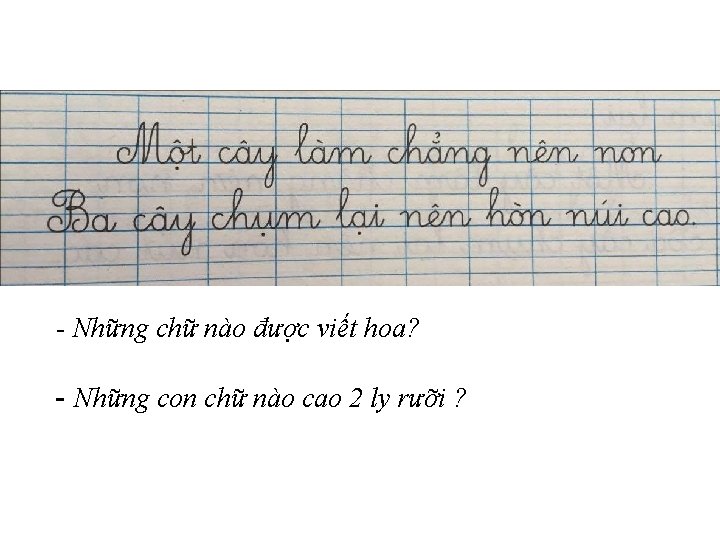 Một cây làm chẳng nên non
Ba cây chụm lại nên hòn núi cao.
- Những chữ nào được viết hoa?
- Những con chữ nào cao 2 ly rưỡi ?